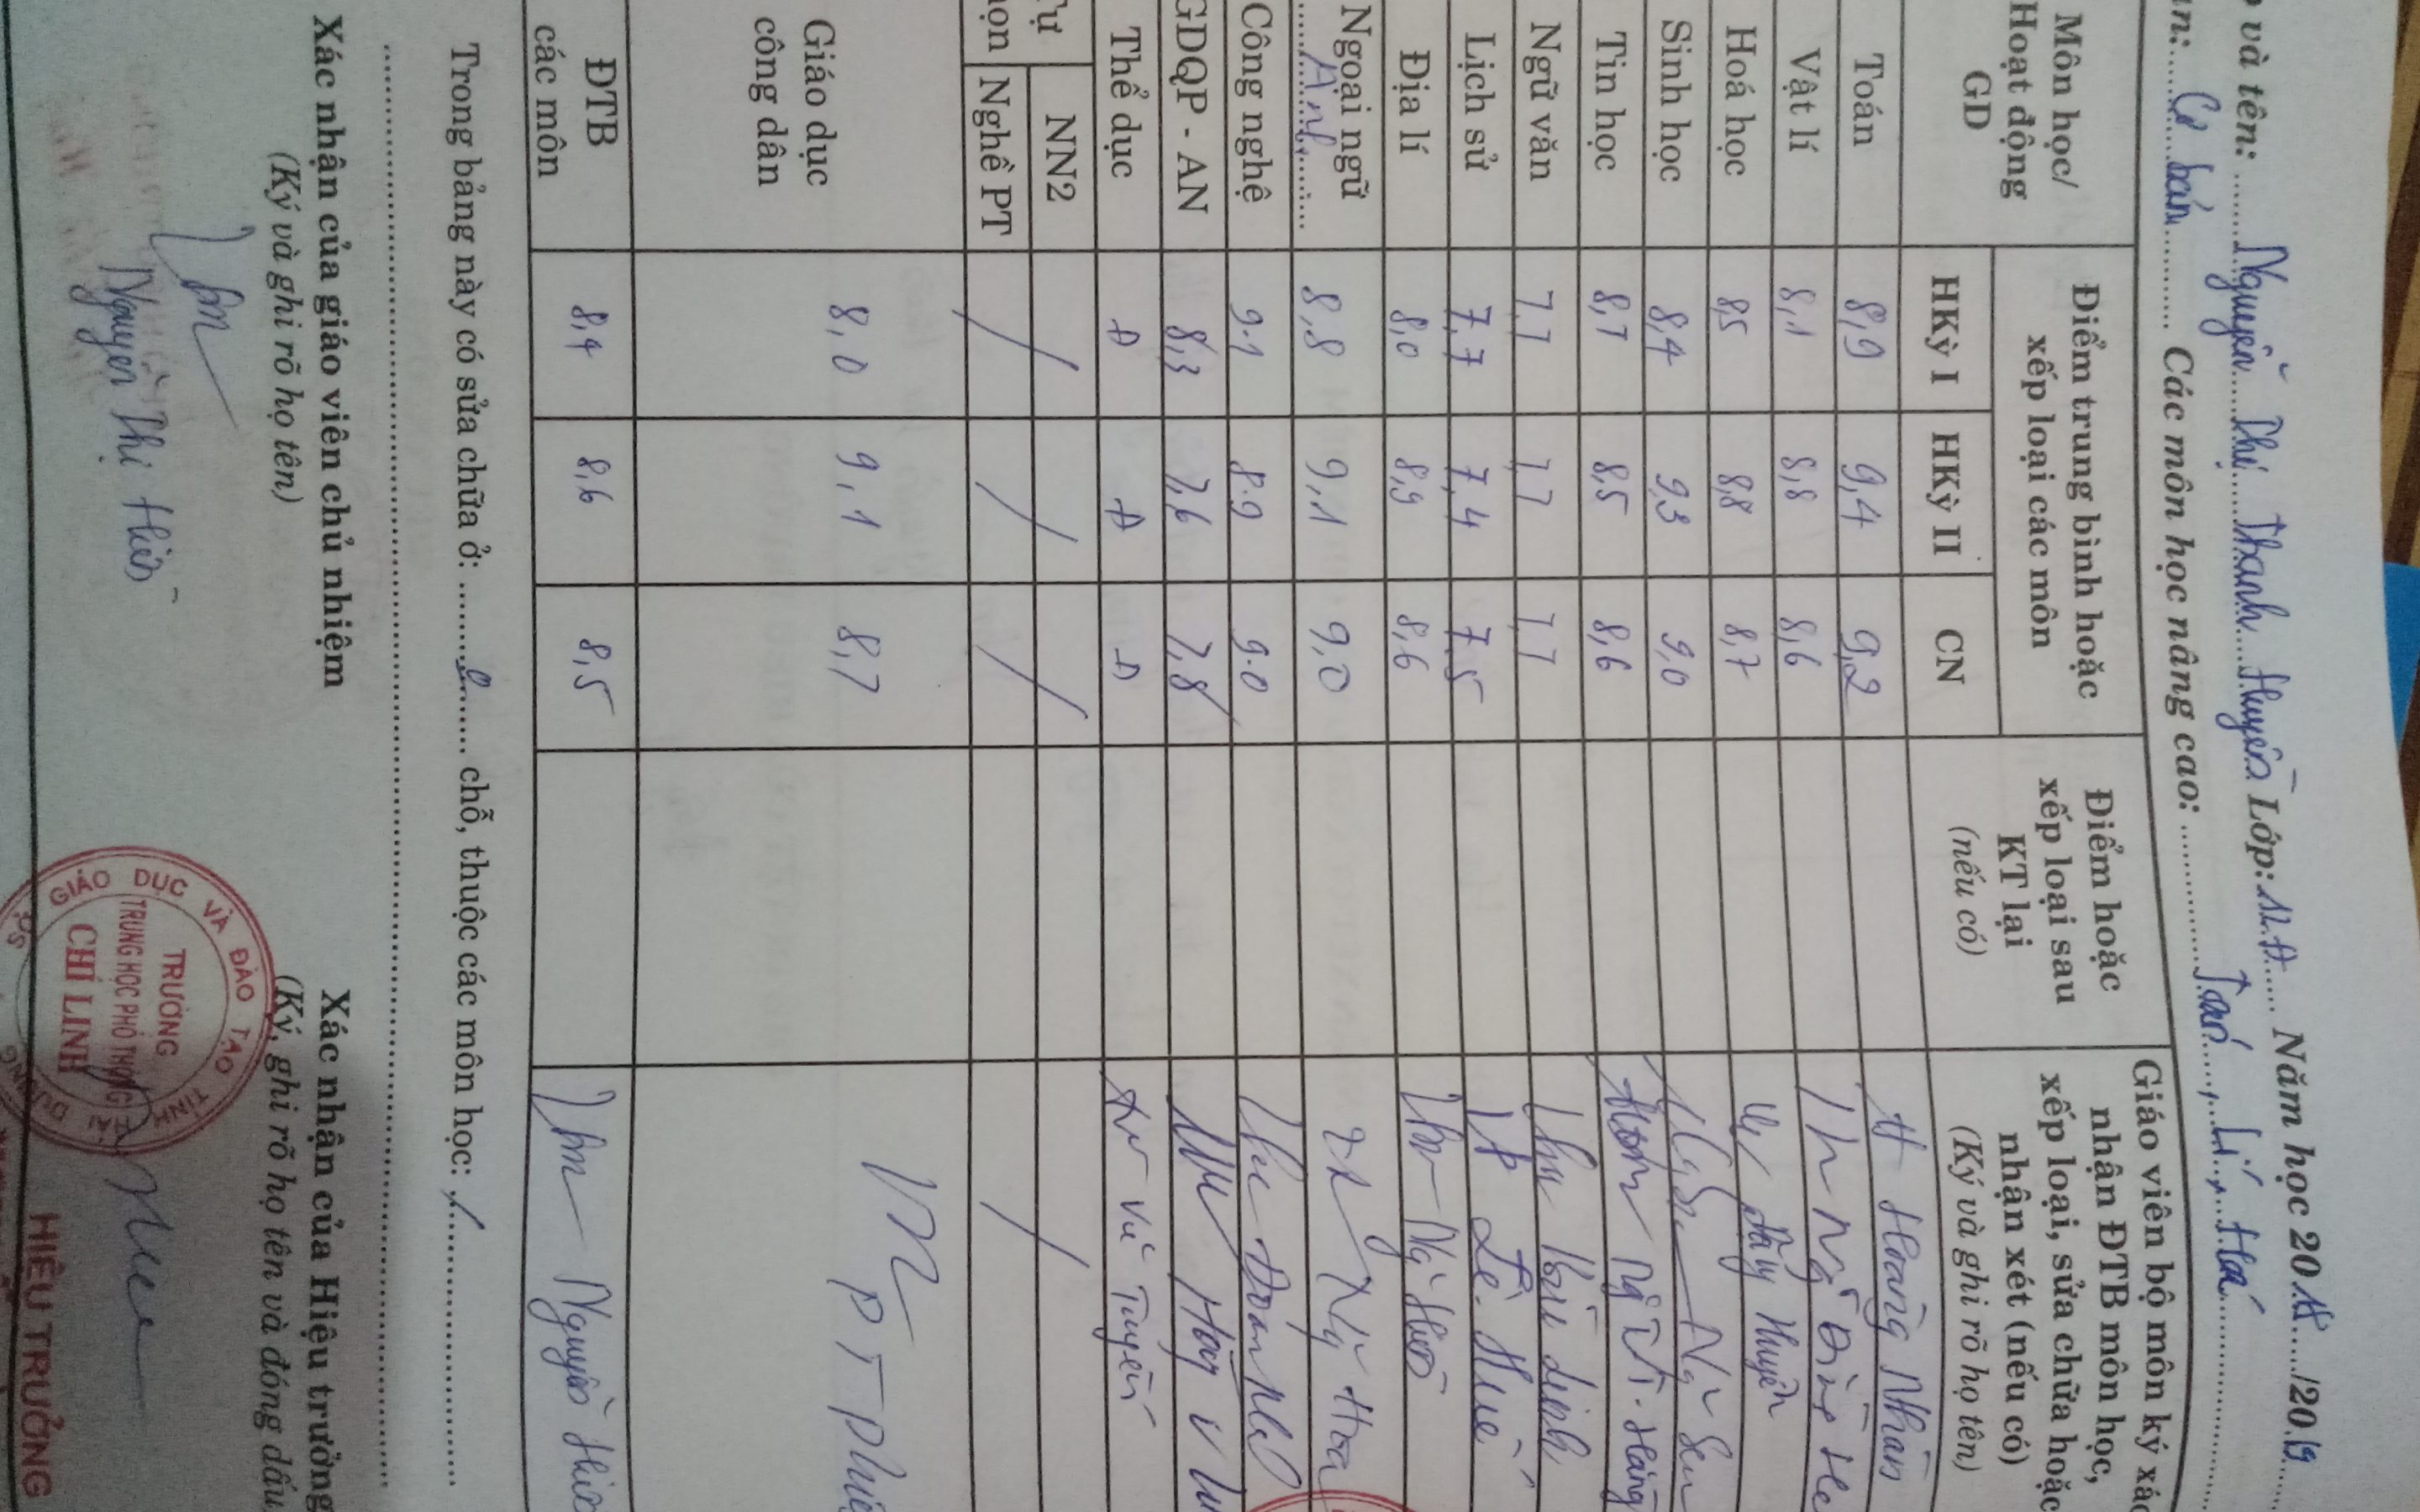 và tên: Nguyễn Thị Thanh Huyền Lớp: 12A Năm học 2018/2019
Cơ bản Các môn học nâng cao: Toán, Lí, Hoá
Môn học/ Hoạt động GD
Điểm trung bình hoặc xếp loại các môn
Điểm hoặc xếp loại sau KT lại (nếu có)
Giáo viên bộ môn ký xác nhận ĐTB môn học, xếp loại, sửa chữa hoặc nhận xét (nếu có) (Ký và ghi rõ họ tên)
HKỳ I HKỳ II CN
Toán 8,9 9,4 9,2 Hoàng Nhàn
Vật lí 8,1 8,8 8,6
Hoá học 8,5 8,8 8,7
Sinh học 8,4 9,3 9,0
Tin học 8,7 8,5 8,6
Ngữ văn 7,7 7,7 7,7
Lịch sử 7,7 7,4 7,5 Lê Huê
Địa lí 8,0 8,9 8,6
Ngoại ngữ Anh 8,8 9,1 9,0
Công nghệ 9.1 8.9 9.0
GDQP - AN 8,3 7,6 7,8
Thể dục Đ Đ Đ Vũ Tuyến
Tự NN2
Nghề PT / / / /
Giáo dục công dân 8,0 9,1 8,7
ĐTB các môn 8,4 8,6 8,5 Nguyễn Hiền
Trong bảng này có sửa chữa ở: chỗ, thuộc các môn học: /
Xác nhận của giáo viên chủ nhiệm
(Ký và ghi rõ họ tên)
Nguyễn Thị Hiền
Xác nhận của Hiệu trưởng
(Ký, ghi rõ họ tên và đóng dấu
SỞ GIÁO DỤC VÀ ĐÀO TẠO TỈNH HẢI DƯƠNG
TRƯỜNG
TRUNG HỌC PHỔ THÔNG
CHÍ LINH
HIỆU TRƯỞNG